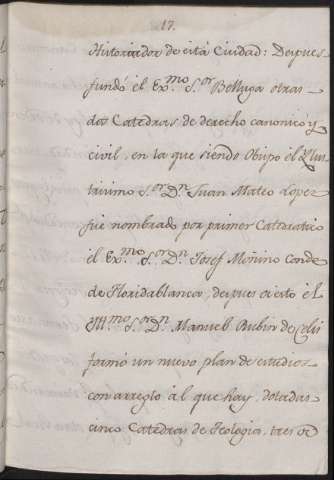 17.
Historiador de esta Ciudad: Despues
fundó el Ex.mo S.or Belluga otras
dos Catedras de derecho canonico y
civil, en la que siendo Obispo el Ylus
trisimo S.or Dn. Juan Mateo Lopez
fue nombrado por primer Catedratico
el Ex.mo S.or Dn. Josef Moñino conde
de Floridablanca, despues de esto el
Ill.mo S.or Dn. Manuel Rubin de Celis
formó un nuevo plan de estudios
con arreglo al que hay, dotadas
cinco Catedras de Teologia, tres de